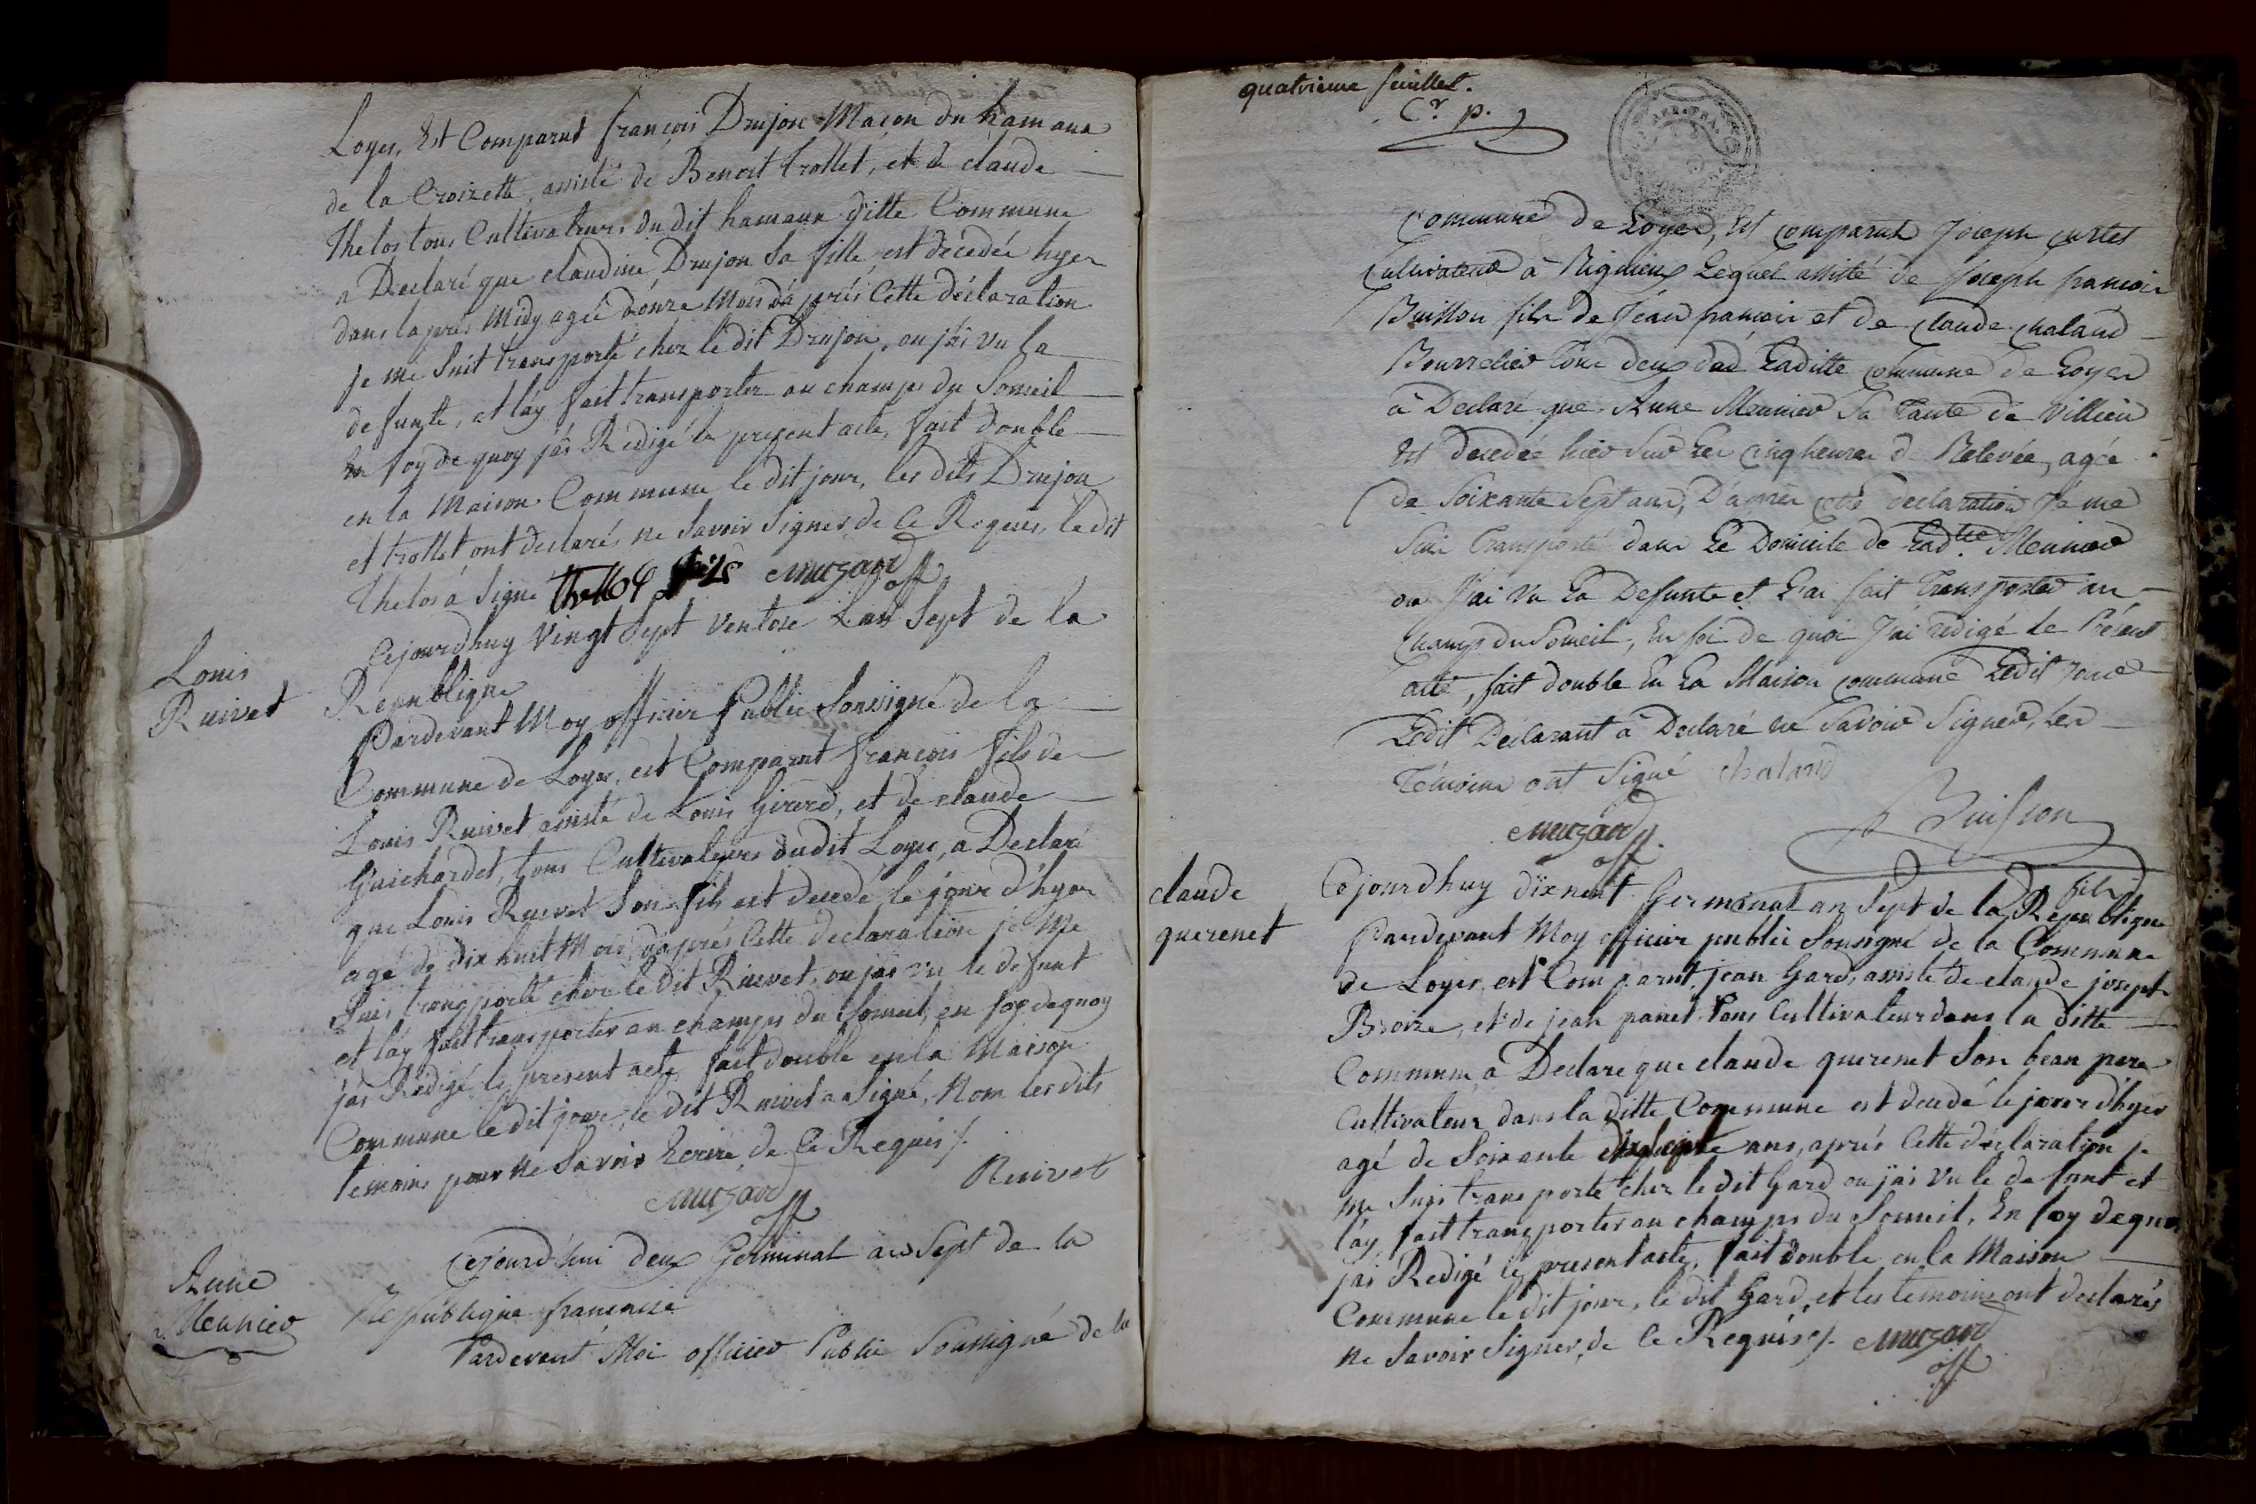 Loyes, Est Comparut françois Drujon Maçon du hamaux
de la Croizette, assisté de Benoit trollet, et de claude
thelos tous Cultivateurs du dit hamaux ditte Commune
a Declaré que claudine Drujon Sa fille, est decedée hyer
dans l'aprés Midy agée d'onze Mois d'aprés Cette déclaration
Je me suit transporté chez le dit Drujon, ou j'ai vu la
defunte, et l'ay fait transporter au champs du Someil
En foy de quoy j'ai Redigé le present acte, fait double
en la Maison Commune le dit jour, les dits Drujon
et trollet ont declarés ne Savoir Signer de Ce Requis, le dit
thelos a Signé thellos fils Muzard
off
Louis
Ruivet
Cejourdhuy Vingt Sept Ventose L'an Sept de la
Republique
Pardevant Moy officier Public Soussigné de la
Commune de Loyes, est Comparut françois fils de
Louis Ruivet assisté de Louis Girerd, et de claude
Guichardet, tous Cultivateurs dudit Loyes, a Declaré
que Louis Ruivet Son fils est decedé le jour d'hyer
agé de dix huit Mois, d'aprés Cette declaration je Me
Suis transporté chez le dit Ruivet, ou jai vu le defunt
et l'ay fait transporter au champs du Someil, en foy dequoy
j'ai Redigé le present acte fait double en la Maison
Commune le dit jour, le dit Ruivet a Signé, Non les dits
temoins pour Ne Savoir Ecrire de Ce Requis /.
Muzard Ruivet
off
Anne
Meunier
Cejourd'hui deux Germinal an Sept de la
République francaise
Pardevant Moi officier Public Soussigné de la
quatrieme feuillet.
Cr p.
Commune de Loyes, Est comparut Joseph curtet
Cultivateur à Rignieux Lequel assisté de Joseph francois
Buisson fils de Jean francois et de claude chaland
Bourrelier tous deux de Laditte commune de Loyes
a Declaré que Anne Meunier Sa Tante de Villieu
Est decedée hier Sur les cinq heures de Relevée, agée
de Soixante Sept ans, D'aprés cette declaration Je me
Suis Transporté dans le Domicile de Ladtte Meunier
ou J'ai Vu La Defunte et L'ai fait Transporter au
Champs du Someil, En foi de quoi J'ai redigé le Présent
acte, fait double En La Maison commune Ledit Jour
Ledit Declarant à Declaré ne Savoir Signer, les
Témoins ont Signé chaland
Muzard Buisson
off. fils
claude
querenet
Cejourdhuy dixneuf Germinal an Sept de la Republique
Pardevant Moy officier public Sousigné de la Commune
de Loyes, est Comparut, jean Gard, assisté de claude joseph
Broize, et de jean panet tous Cultivateur dans la ditte
Commune, a Declare que claude querenet Son beau pere
Cultivateur dans la ditte Commune est decedé le jour d'hyer
agé de Soixante ans, aprés Cette declaration je
me Suis transporté chez le dit Gard ou jai vu le defunt et
l'ay fait transporter au champs du Someil, En foy dequoi
jai Redigé le present acte, fait double en la Maison
Commune le dit jour, le dit Gard, et les temoins ont declarés
ne Savoir Signer, de Ce Requis /. Muzard
off